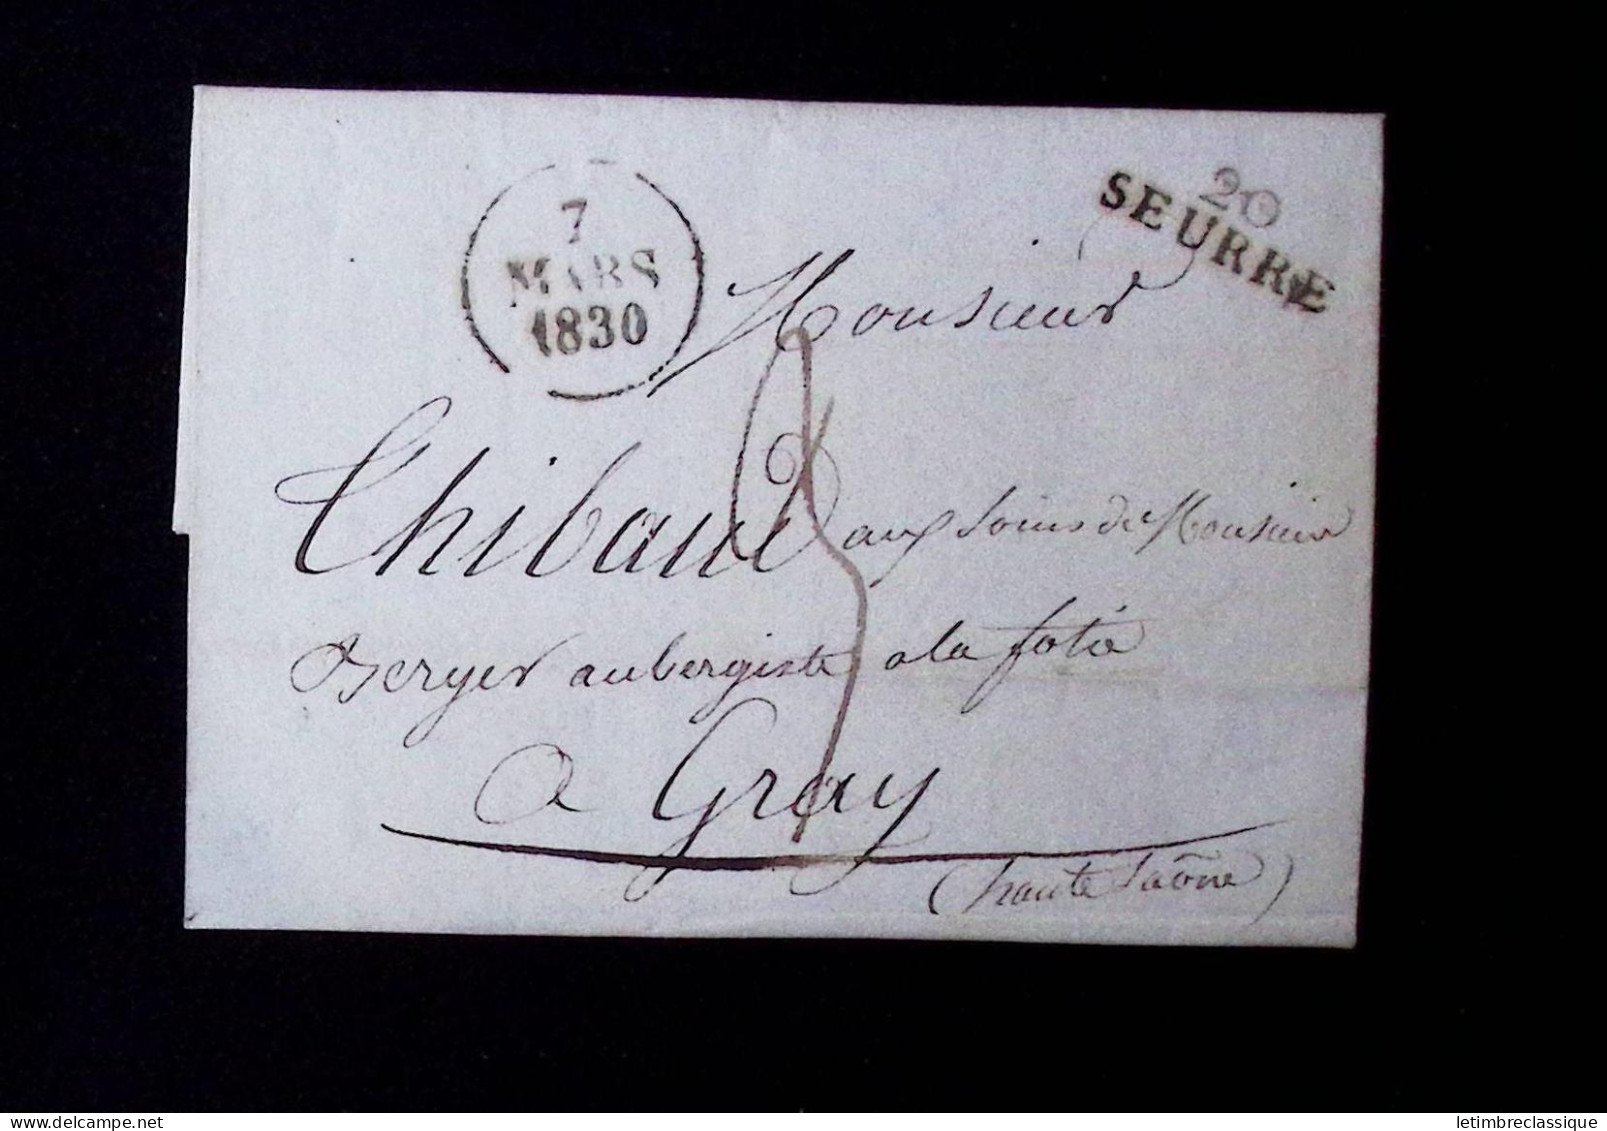 7
MARS
1830
20
SEURRE
Monsieur
Thibaud aux soins de Monsieur
Berger aubergiste a la
a Gray
(haute Saône)
letimbreclassique